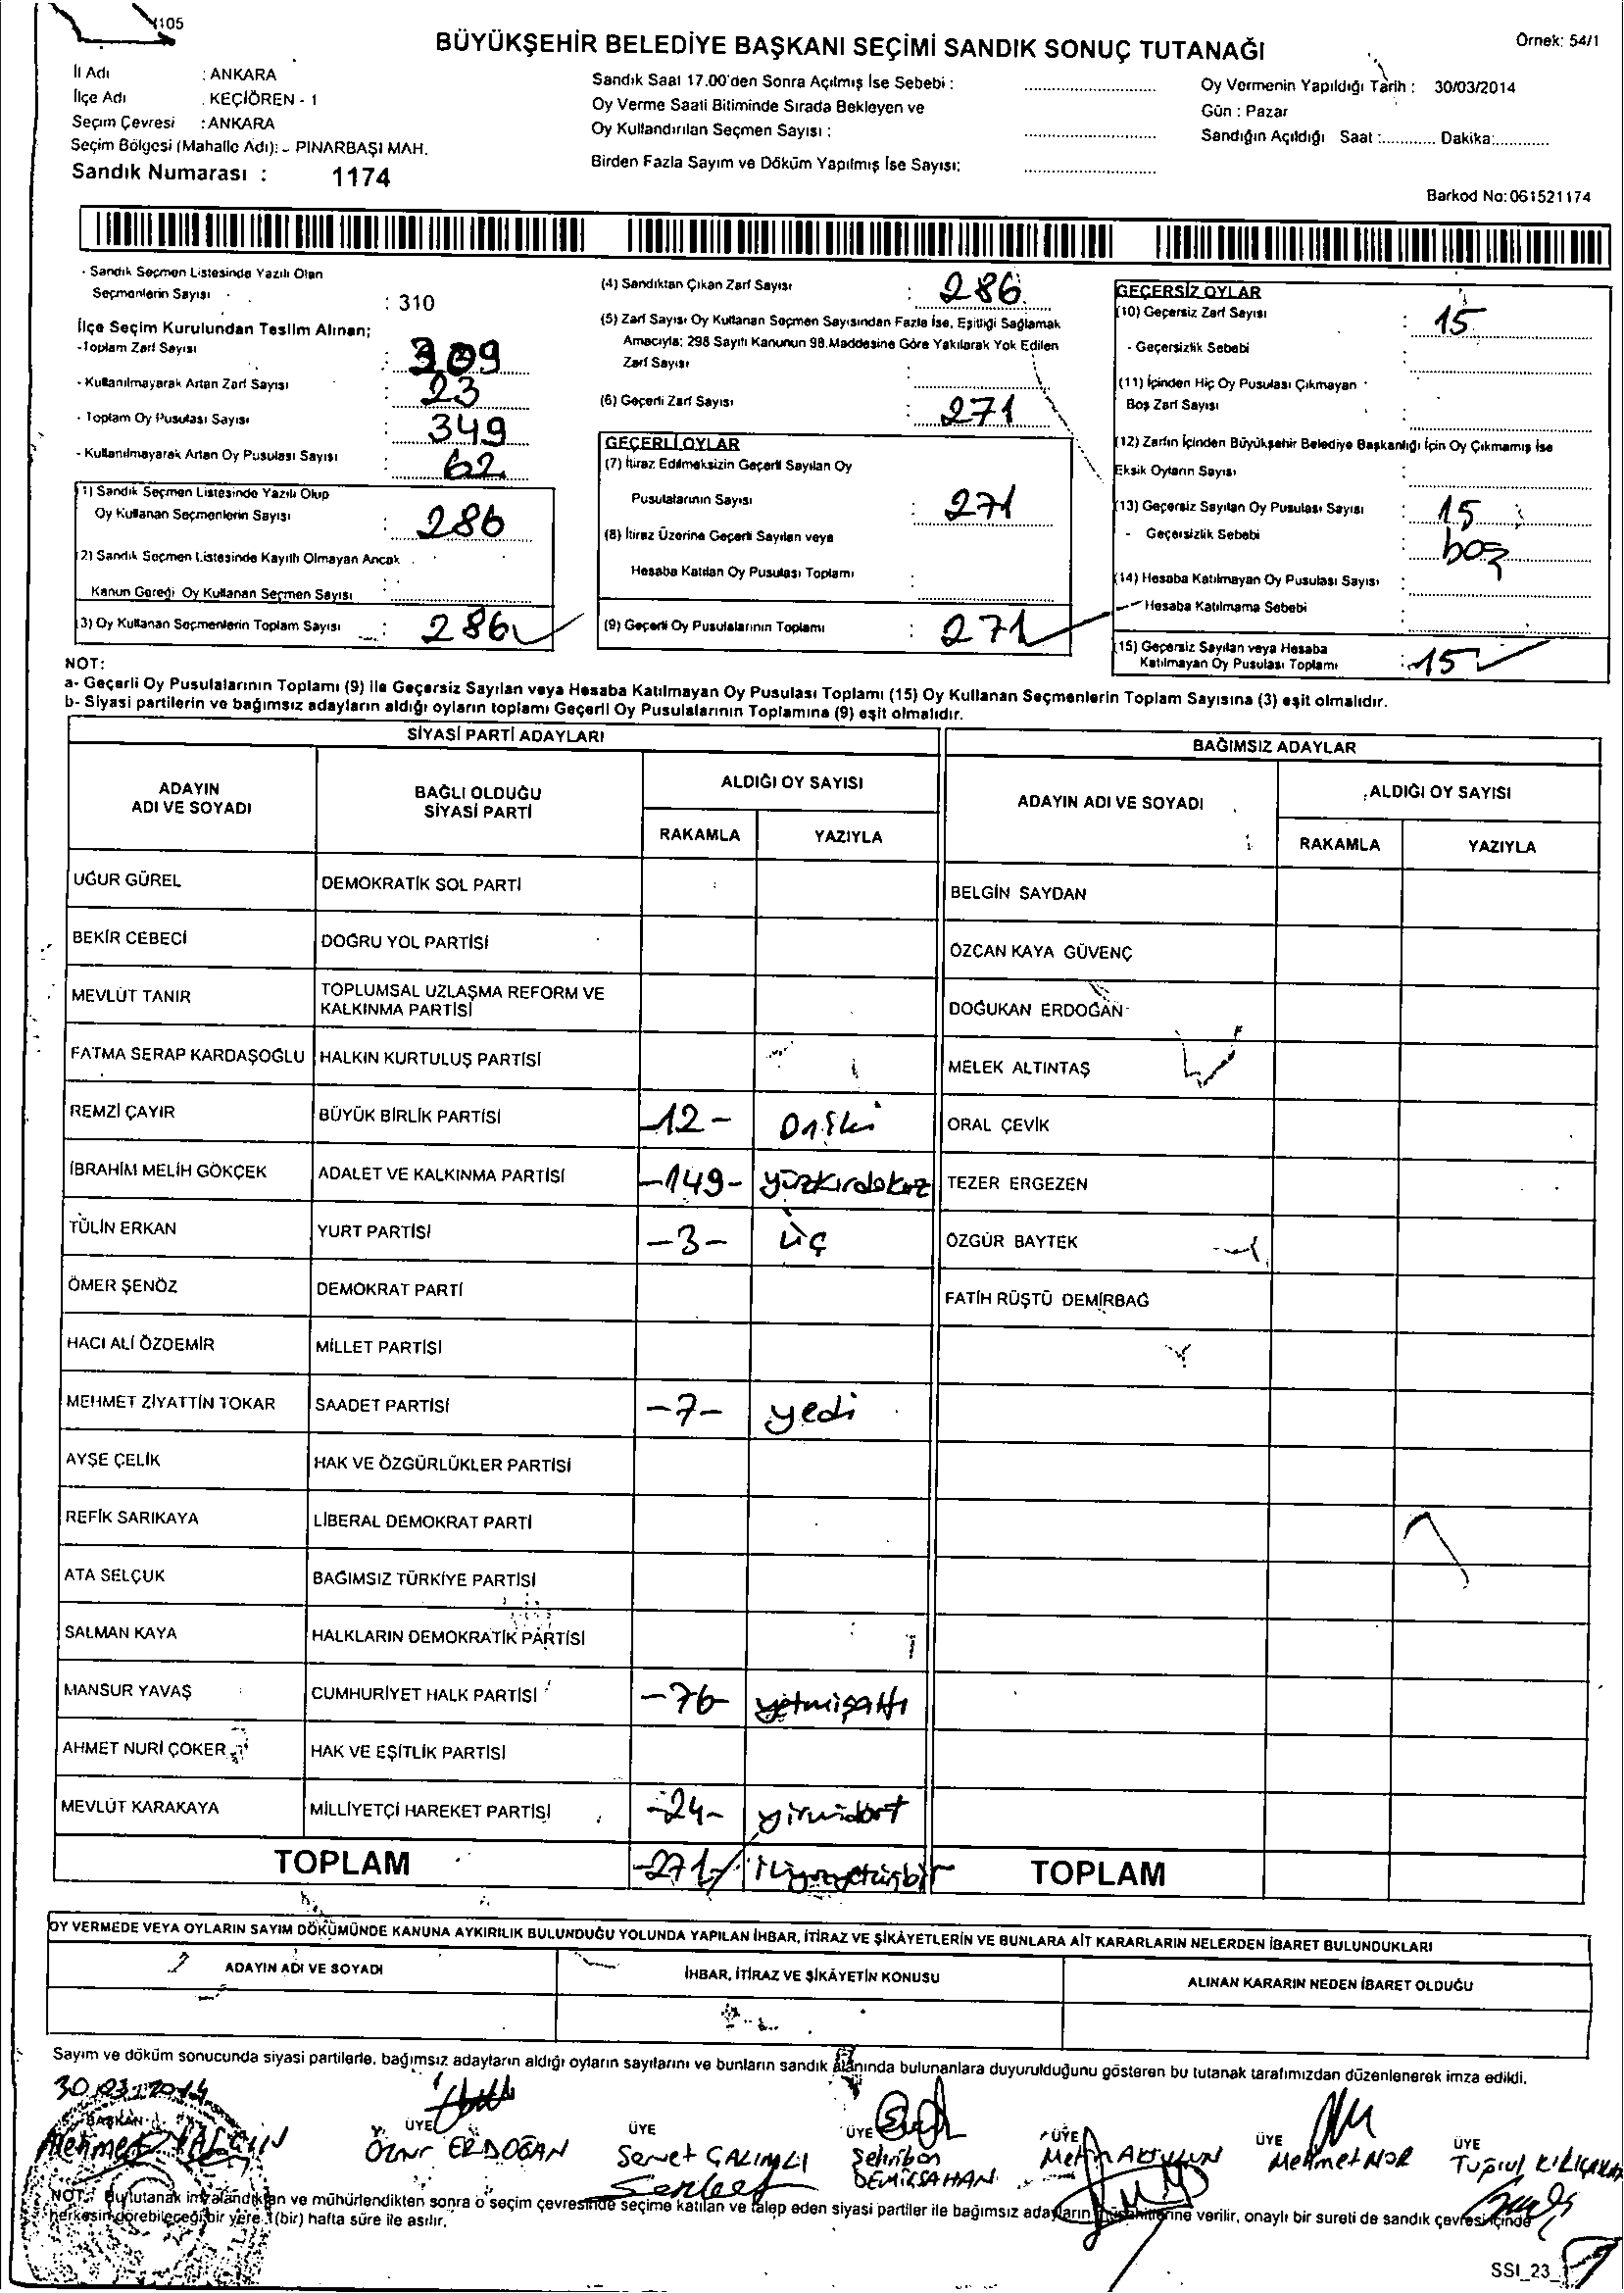 1105
BÜYÜKŞEHİR BELEDİYE BAŞKANI SEÇİMİ SANDIK SONUÇ TUTANAĞI
Örnek: 54/1
İl Adı : ANKARA
İlçe Adı : KEÇİÖREN - 1
Seçim Çevresi : ANKARA
Seçim Bölgesi (Mahalle Adı): - PINARBAŞI MAH.
Sandık Numarası : 1174
Sandık Saat 17.00'den Sonra Açılmış İse Sebebi :
Oy Verme Saati Bitiminde Sırada Bekleyen ve
Oy Kullandırılan Seçmen Sayısı :
Birden Fazla Sayım ve Döküm Yapılmış İse Sayısı:
Oy Vermenin Yapıldığı Tarih : 30/03/2014
Gün : Pazar
Sandığın Açıldığı Saat :............ Dakika:............
Barkod No: 061521174
- Sandık Seçmen Listesinde Yazılı Olan
Seçmenlerin Sayısı : 310
İlçe Seçim Kurulundan Teslim Alınan;
-Toplam Zarf Sayısı : 309
- Kullanılmayarak Artan Zarf Sayısı : 23
- Toplam Oy Pusulası Sayısı : 349
- Kullanılmayarak Artan Oy Pusulası Sayısı : 62
(1) Sandık Seçmen Listesinde Yazılı Olup
Oy Kullanan Seçmenlerin Sayısı : 286
(2) Sandık Seçmen Listesinde Kayıtlı Olmayan Ancak
Kanun Gereği Oy Kullanan Seçmen Sayısı :
(3) Oy Kullanan Seçmenlerin Toplam Sayısı : 286
(4) Sandıktan Çıkan Zarf Sayısı : 286
(5) Zarf Sayısı Oy Kullanan Seçmen Sayısından Fazla İse, Eşitliği Sağlamak
Amacıyla; 298 Sayılı Kanunun 98.Maddesine Göre Yakılarak Yok Edilen
Zarf Sayısı :
(6) Geçerli Zarf Sayısı : 271
GEÇERLİ OYLAR
(7) İtiraz Edilmeksizin Geçerli Sayılan Oy
Pusulalarının Sayısı : 271
(8) İtiraz Üzerine Geçerli Sayılan veya
Hesaba Katılan Oy Pusulası Toplamı :
(9) Geçerli Oy Pusulalarının Toplamı : 271
GEÇERSİZ OYLAR
(10) Geçersiz Zarf Sayısı : 15
- Geçersizlik Sebebi :
(11) İçinden Hiç Oy Pusulası Çıkmayan
Boş Zarf Sayısı :
(12) Zarfın İçinden Büyükşehir Belediye Başkanlığı İçin Oy Çıkmamış İse
Eksik Oyların Sayısı :
(13) Geçersiz Sayılan Oy Pusulası Sayısı : 15
- Geçersizlik Sebebi : boş
(14) Hesaba Katılmayan Oy Pusulası Sayısı :
- Hesaba Katılmama Sebebi :
(15) Geçersiz Sayılan veya Hesaba
Katılmayan Oy Pusulası Toplamı : 15
NOT:
a- Geçerli Oy Pusulalarının Toplamı (9) ile Geçersiz Sayılan veya Hesaba Katılmayan Oy Pusulası Toplamı (15) Oy Kullanan Seçmenlerin Toplam Sayısına (3) eşit olmalıdır.
b- Siyasi partilerin ve bağımsız adayların aldığı oyların toplamı Geçerli Oy Pusulalarının Toplamına (9) eşit olmalıdır.
SİYASİ PARTİ ADAYLARI
ADAYIN ADI VE SOYADI
BAĞLI OLDUĞU SİYASİ PARTİ
ALDIĞI OY SAYISI
RAKAMLA YAZIYLA
UĞUR GÜREL DEMOKRATİK SOL PARTİ
BEKİR CEBECİ DOĞRU YOL PARTİSİ
MEVLÜT TANIR TOPLUMSAL UZLAŞMA REFORM VE KALKINMA PARTİSİ
FATMA SERAP KARDAŞOĞLU HALKIN KURTULUŞ PARTİSİ
REMZİ ÇAYIR BÜYÜK BİRLİK PARTİSİ -12- oniki
İBRAHİM MELİH GÖKÇEK ADALET VE KALKINMA PARTİSİ -149- yüzkırdokuz
TÜLİN ERKAN YURT PARTİSİ -3- üç
ÖMER ŞENÖZ DEMOKRAT PARTİ
HACI ALİ ÖZDEMİR MİLLET PARTİSİ
MEHMET ZİYATTİN TOKAR SAADET PARTİSİ -7- yedi
AYŞE ÇELİK HAK VE ÖZGÜRLÜKLER PARTİSİ
REFİK SARIKAYA LİBERAL DEMOKRAT PARTİ
ATA SELÇUK BAĞIMSIZ TÜRKİYE PARTİSİ
SALMAN KAYA HALKLARIN DEMOKRATİK PARTİSİ
MANSUR YAVAŞ CUMHURİYET HALK PARTİSİ -76- yetmişaltı
AHMET NURİ ÇOKER HAK VE EŞİTLİK PARTİSİ
MEVLÜT KARAKAYA MİLLİYETÇİ HAREKET PARTİSİ -24- yirmidört
TOPLAM -271-
BAĞIMSIZ ADAYLAR
ADAYIN ADI VE SOYADI
ALDIĞI OY SAYISI
RAKAMLA YAZIYLA
BELGİN SAYDAN
ÖZCAN KAYA GÜVENÇ
DOĞUKAN ERDOĞAN
MELEK ALTINTAŞ
ORAL ÇEVİK
TEZER ERGEZEN
ÖZGÜR BAYTEK
FATİH RÜŞTÜ DEMİRBAĞ
TOPLAM
OY VERMEDE VEYA OYLARIN SAYIM DÖKÜMÜNDE KANUNA AYKIRILIK BULUNDUĞU YOLUNDA YAPILAN İHBAR, İTİRAZ VE ŞİKÂYETLERİN VE BUNLARA AİT KARARLARIN NELERDEN İBARET BULUNDUKLARI
ADAYIN ADI VE SOYADI
İHBAR, İTİRAZ VE ŞİKÂYETİN KONUSU
ALINAN KARARIN NEDEN İBARET OLDUĞU
Sayım ve döküm sonucunda siyasi partilerle, bağımsız adayların aldığı oyların sayılarını ve bunların sandık alanında bulunanlara duyurulduğunu gösteren bu tutanak tarafımızdan düzenlenerek imza edildi.
30.03.2014
BAŞKAN ÜYE ÜYE ÜYE ÜYE ÜYE ÜYE
Mehmet YALÇIN
Öznr ERDOĞAN
Servet ÇALIMLI
Şehriban DEMİRŞAHAN
Metin
Mehmet NOR
Tuğrul
NOT: Bu tutanak imzalandıktan ve mühürlendikten sonra o seçim çevresinde seçime katılan ve talep eden siyasi partiler ile bağımsız adayların müşahitlerine verilir, onaylı bir sureti de sandık çevresi içinde
herkesin görebileceği bir yere 1(bir) hafta süre ile asılır.
SSI_23_